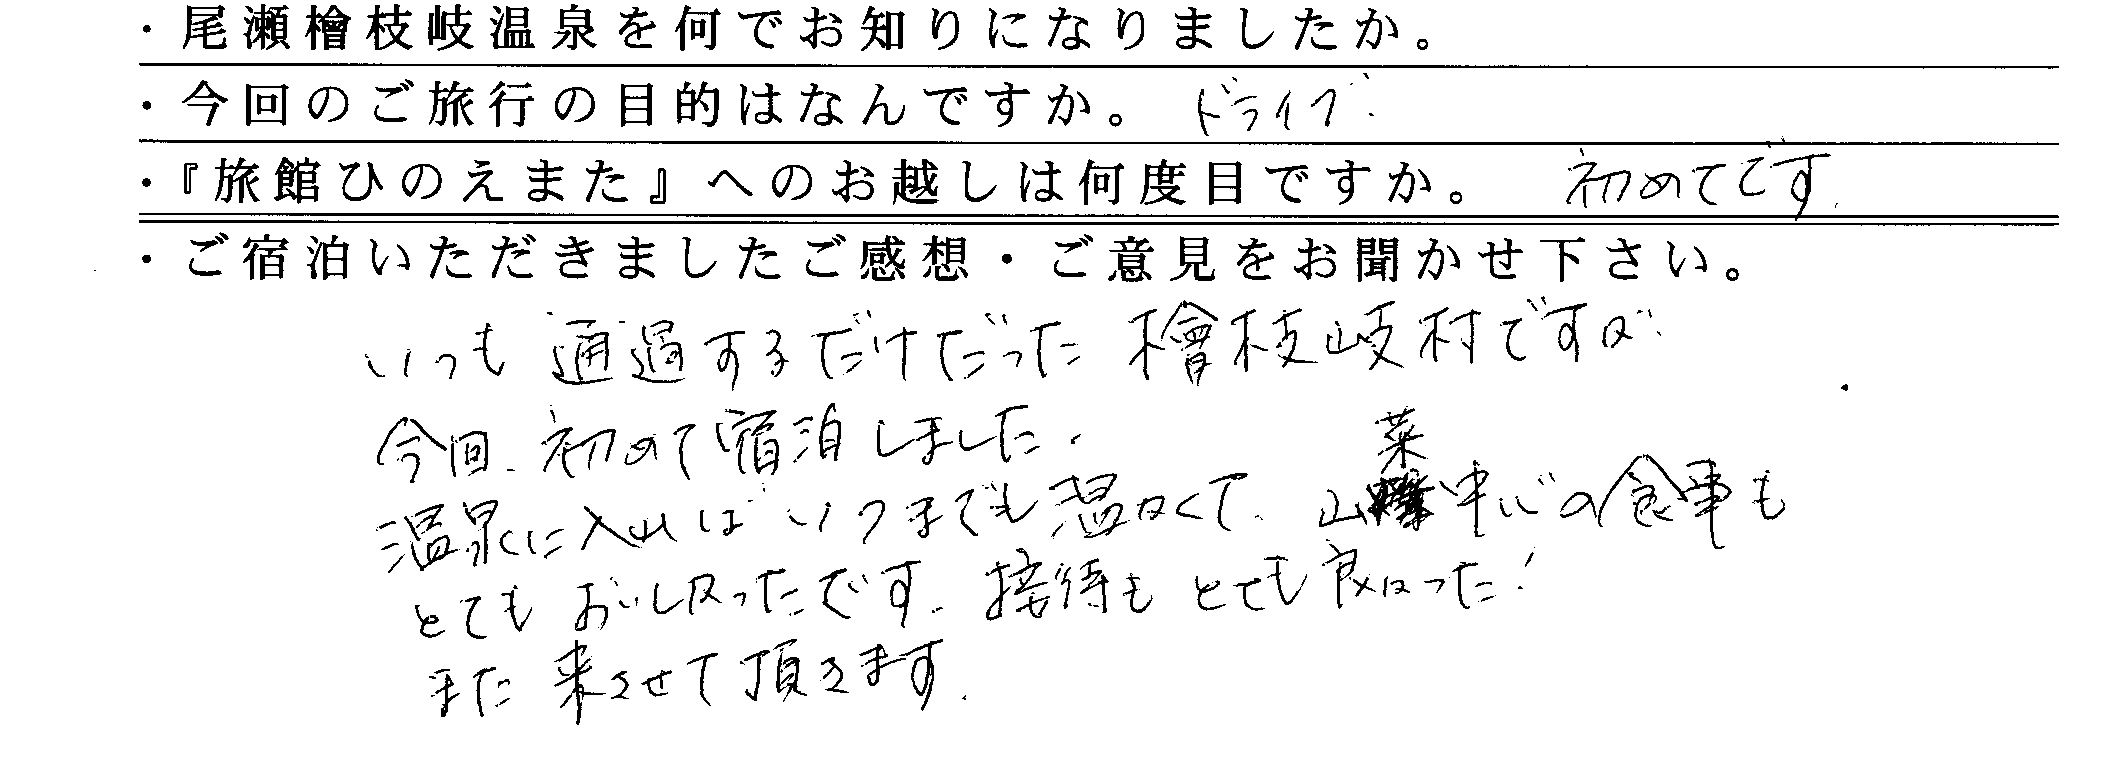 ・尾瀬檜枝岐温泉を何でお知りになりましたか。
・今回のご旅行の目的はなんですか。 ドライブ
・『旅館ひのえまた』へのお越しは何度目ですか。 初めてです。
・ご宿泊いただきましたご感想・ご意見をお聞かせ下さい。
いつも通過するだけだった檜枝岐村ですが、
今回、初めて宿泊しました。
温泉に入ればいつまでも温かくて、山菜中心の食事も
とてもおいしかったです。接待もとても良かった！
また来させて頂きます。